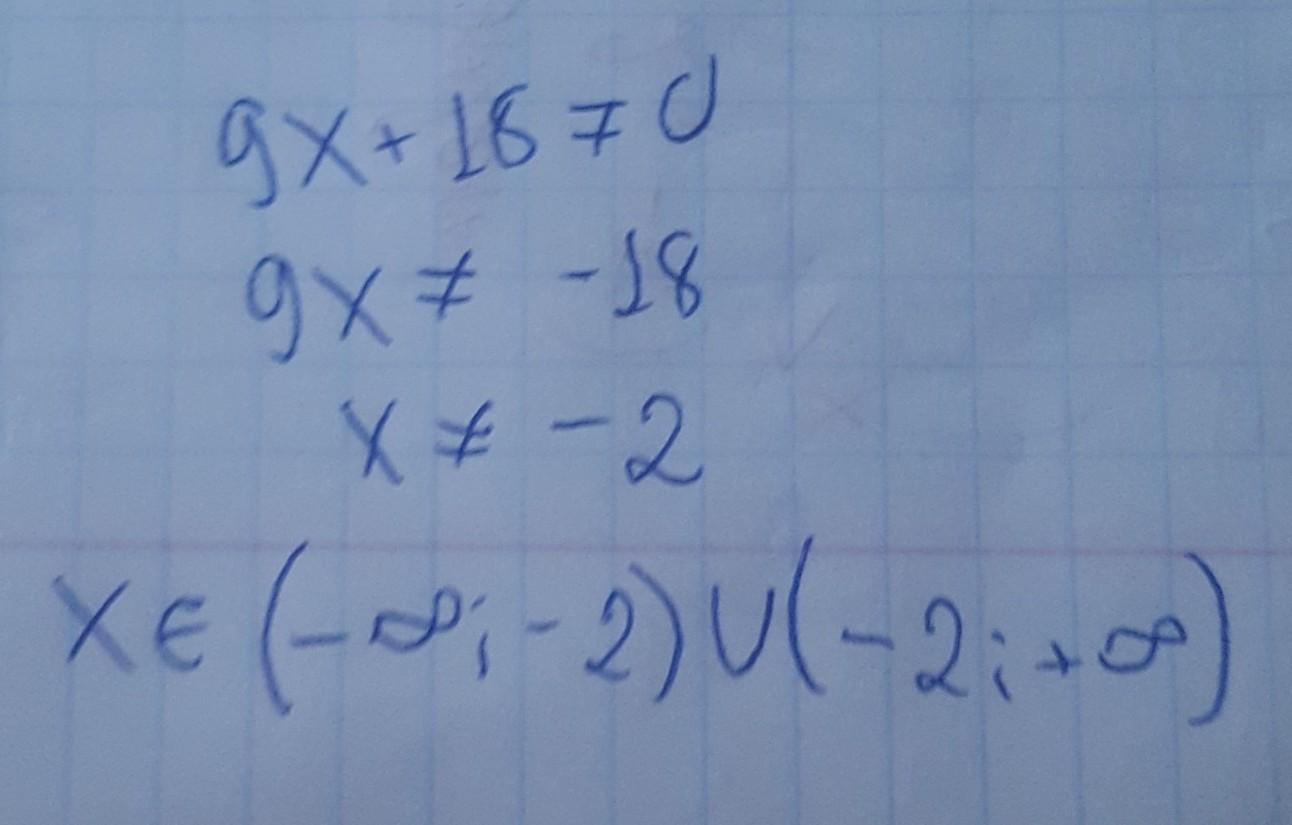 9x + 18 ≠ 0
9x ≠ -18
x ≠ -2
x ∈ (-∞; -2) ∪ (-2; +∞)